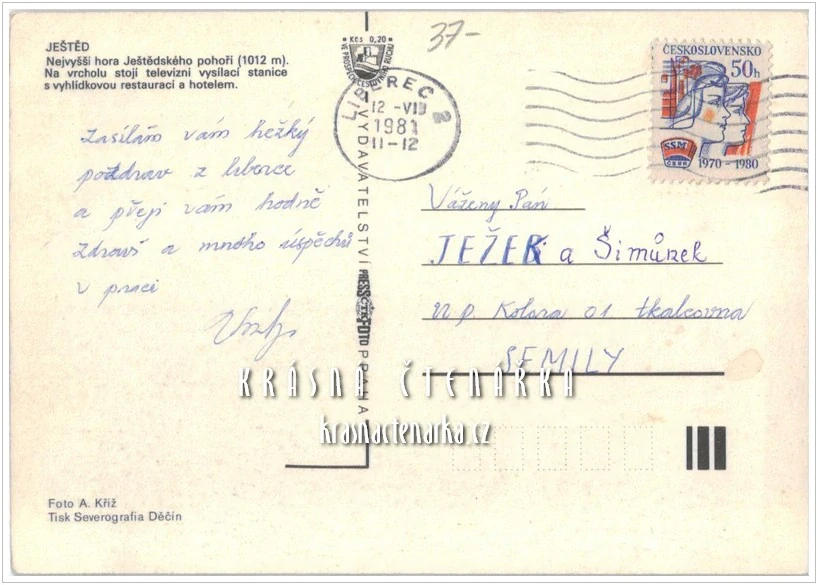 JEŠTĚD
Nejvyšší hora Ještědského pohoří (1012 m).
Na vrcholu stojí televizní vysílací stanice
s vyhlídkovou restaurací a hotelem.
37-
Kčs 0,20
VE PROSPĚCH CESTOVNÍHO RUCHU
LIBEREC 2
12 -VII
1981
11-12
ČESKOSLOVENSKO
50h
SSM
1970 - 1980
Zasílám vám hezký
pozdrav z
a přeji vám hodně
zdraví a mnoho úspěchů
v praci
Vážený Pán
JEŽEK a Šimůnek
n.p. Kolora 01 tkalcovna
SEMILY
VYDAVATELSTVÍ PRESSFOTO PRAHA
KRÁSNÁ ČTENÁŘKA
krasnactenarka.cz
Foto A. Kříž
Tisk Severografia Děčín